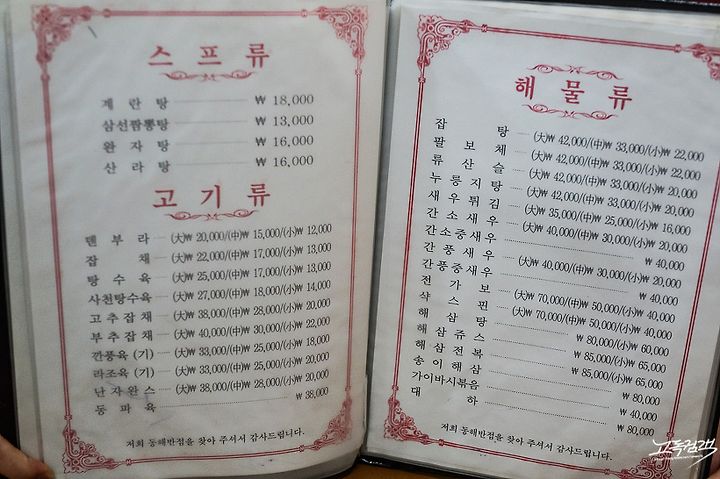 스프류
계란탕 ₩ 18,000
삼선짬뽕탕 ₩ 13,000
완자탕 ₩ 16,000
산라탕 ₩ 16,000
고기류
덴부라 (大)₩ 20,000/(中)₩ 15,000/(小)₩ 12,000
잡채 (大)₩ 22,000/(中)₩ 17,000/(小)₩ 13,000
탕수육 (大)₩ 25,000/(中)₩ 17,000/(小)₩ 13,000
사천탕수육 (大)₩ 27,000/(中)₩ 18,000/(小)₩ 14,000
고추잡채 (大)₩ 38,000/(中)₩ 28,000/(小)₩ 20,000
부추잡채 (大)₩ 40,000/(中)₩ 30,000/(小)₩ 22,000
깐풍육 (기) (大)₩ 33,000/(中)₩ 25,000/(小)₩ 18,000
라조육 (기) (大)₩ 33,000/(中)₩ 25,000/(小)₩ 20,000
난자완스 (大)₩ 38,000/(中)₩ 28,000/(小)₩ 20,000
동파육 ₩ 38,000
저희 동해반점을 찾아 주셔서 감사드립니다.
해물류
잡탕 (大)₩ 42,000/(中)₩ 33,000/(小)₩ 22,000
팔보체 (大)₩ 42,000/(中)₩ 33,000/(小)₩ 22,000
류산슬 (大)₩ 42,000/(中)₩ 33,000/(小)₩ 20,000
누룽지탕 (大)₩ 42,000/(中)₩ 33,000/(小)₩ 20,000
새우튀김 (大)₩ 35,000/(中)₩ 25,000/(小)₩ 16,000
간소새우 (大)₩ 40,000/(中)₩ 30,000/(小)₩ 20,000
간소중새우 ₩ 40,000
간풍새우 (大)₩ 40,000/(中)₩ 30,000/(小)₩ 20,000
간풍중새우 ₩ 40,000
전가보 (大)₩ 70,000/(中)₩ 50,000/(小)₩ 40,000
샥스핀 (大)₩ 70,000/(中)₩ 50,000/(小)₩ 40,000
해삼탕 ₩ 80,000/(小)₩ 60,000
해삼쥬스 ₩ 85,000/(小)₩ 65,000
해삼전복 ₩ 85,000/(小)₩ 65,000
송이해삼 ₩ 80,000
가이바시볶음 ₩ 40,000
대하 ₩ 80,000
저희 동해반점을 찾아 주셔서 감사드립니다.
고독검객